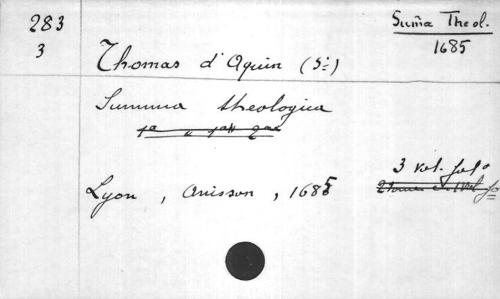 283
3
Suma Theol.
1685
Thomas d'Aquin (St)
Summa theologica
Lyon, Anisson, 1685
3 vol. folº